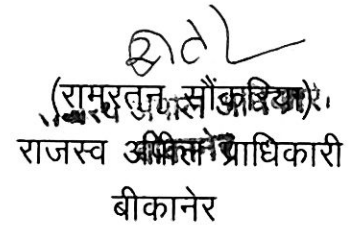 (रामरतन सौंकरिया)
राजस्व अपील प्राधिकारी
बीकानेर